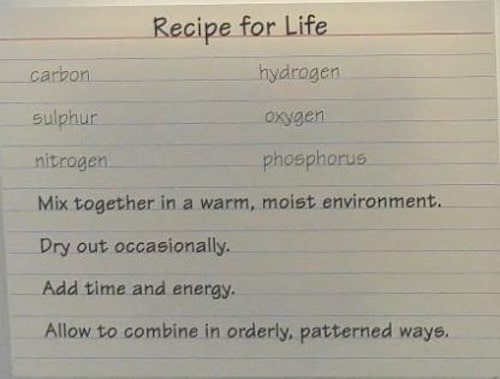 Recipe for Life
carbon hydrogen
sulphur oxygen
nitrogen phosphorus
Mix together in a warm, moist environment.
Dry out occasionally.
Add time and energy.
Allow to combine in orderly, patterned ways.